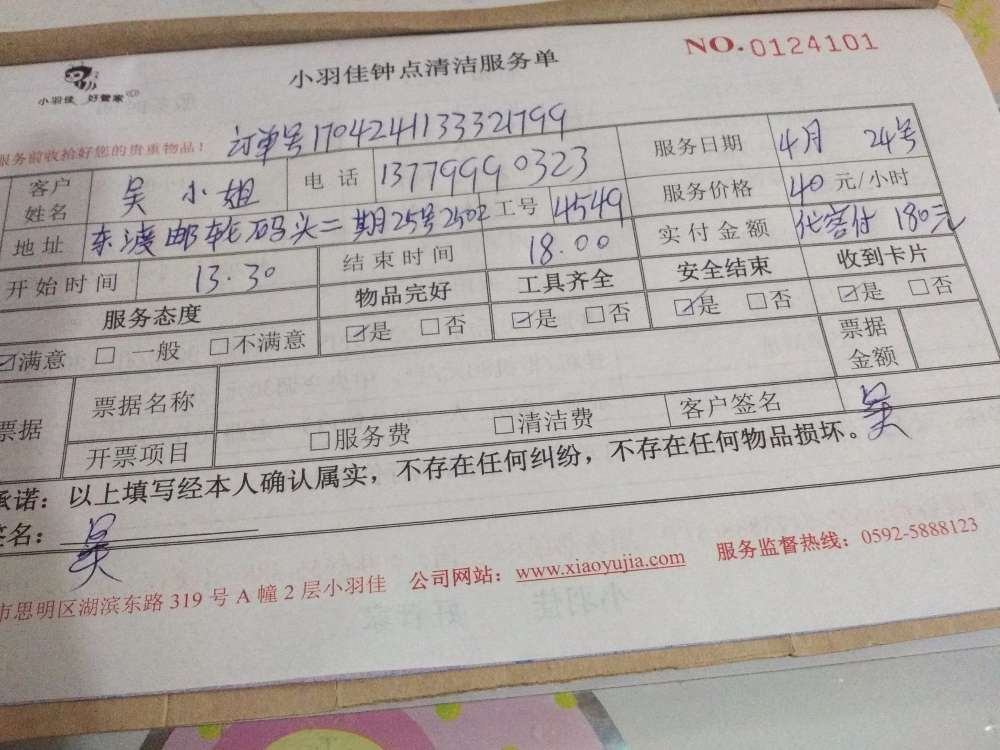 小羽佳 好管家
小羽佳钟点清洁服务单
NO.0124101
服务前收拾好您的贵重物品！
订单号1704241133321799
客户姓名 吴小姐 电话 13779990323 服务日期 4月 24号
地址 东渡邮轮码头二期25号2502 工号 4549 服务价格 40元/小时
开始时间 13.30 结束时间 18.00 实付金额 代客付 180元
服务态度 物品完好 工具齐全 安全结束 收到卡片
☑满意 □一般 □不满意 ☑是 □否 ☑是 □否 ☑是 □否 ☑是 □否
票据 票据名称 票据金额
开票项目 □服务费 □清洁费 客户签名 吴
承诺：以上填写经本人确认属实，不存在任何纠纷，不存在任何物品损坏。
签名：吴
市思明区湖滨东路 319 号 A 幢 2 层小羽佳 公司网站：www.xiaoyujia.com 服务监督热线：0592-5888123